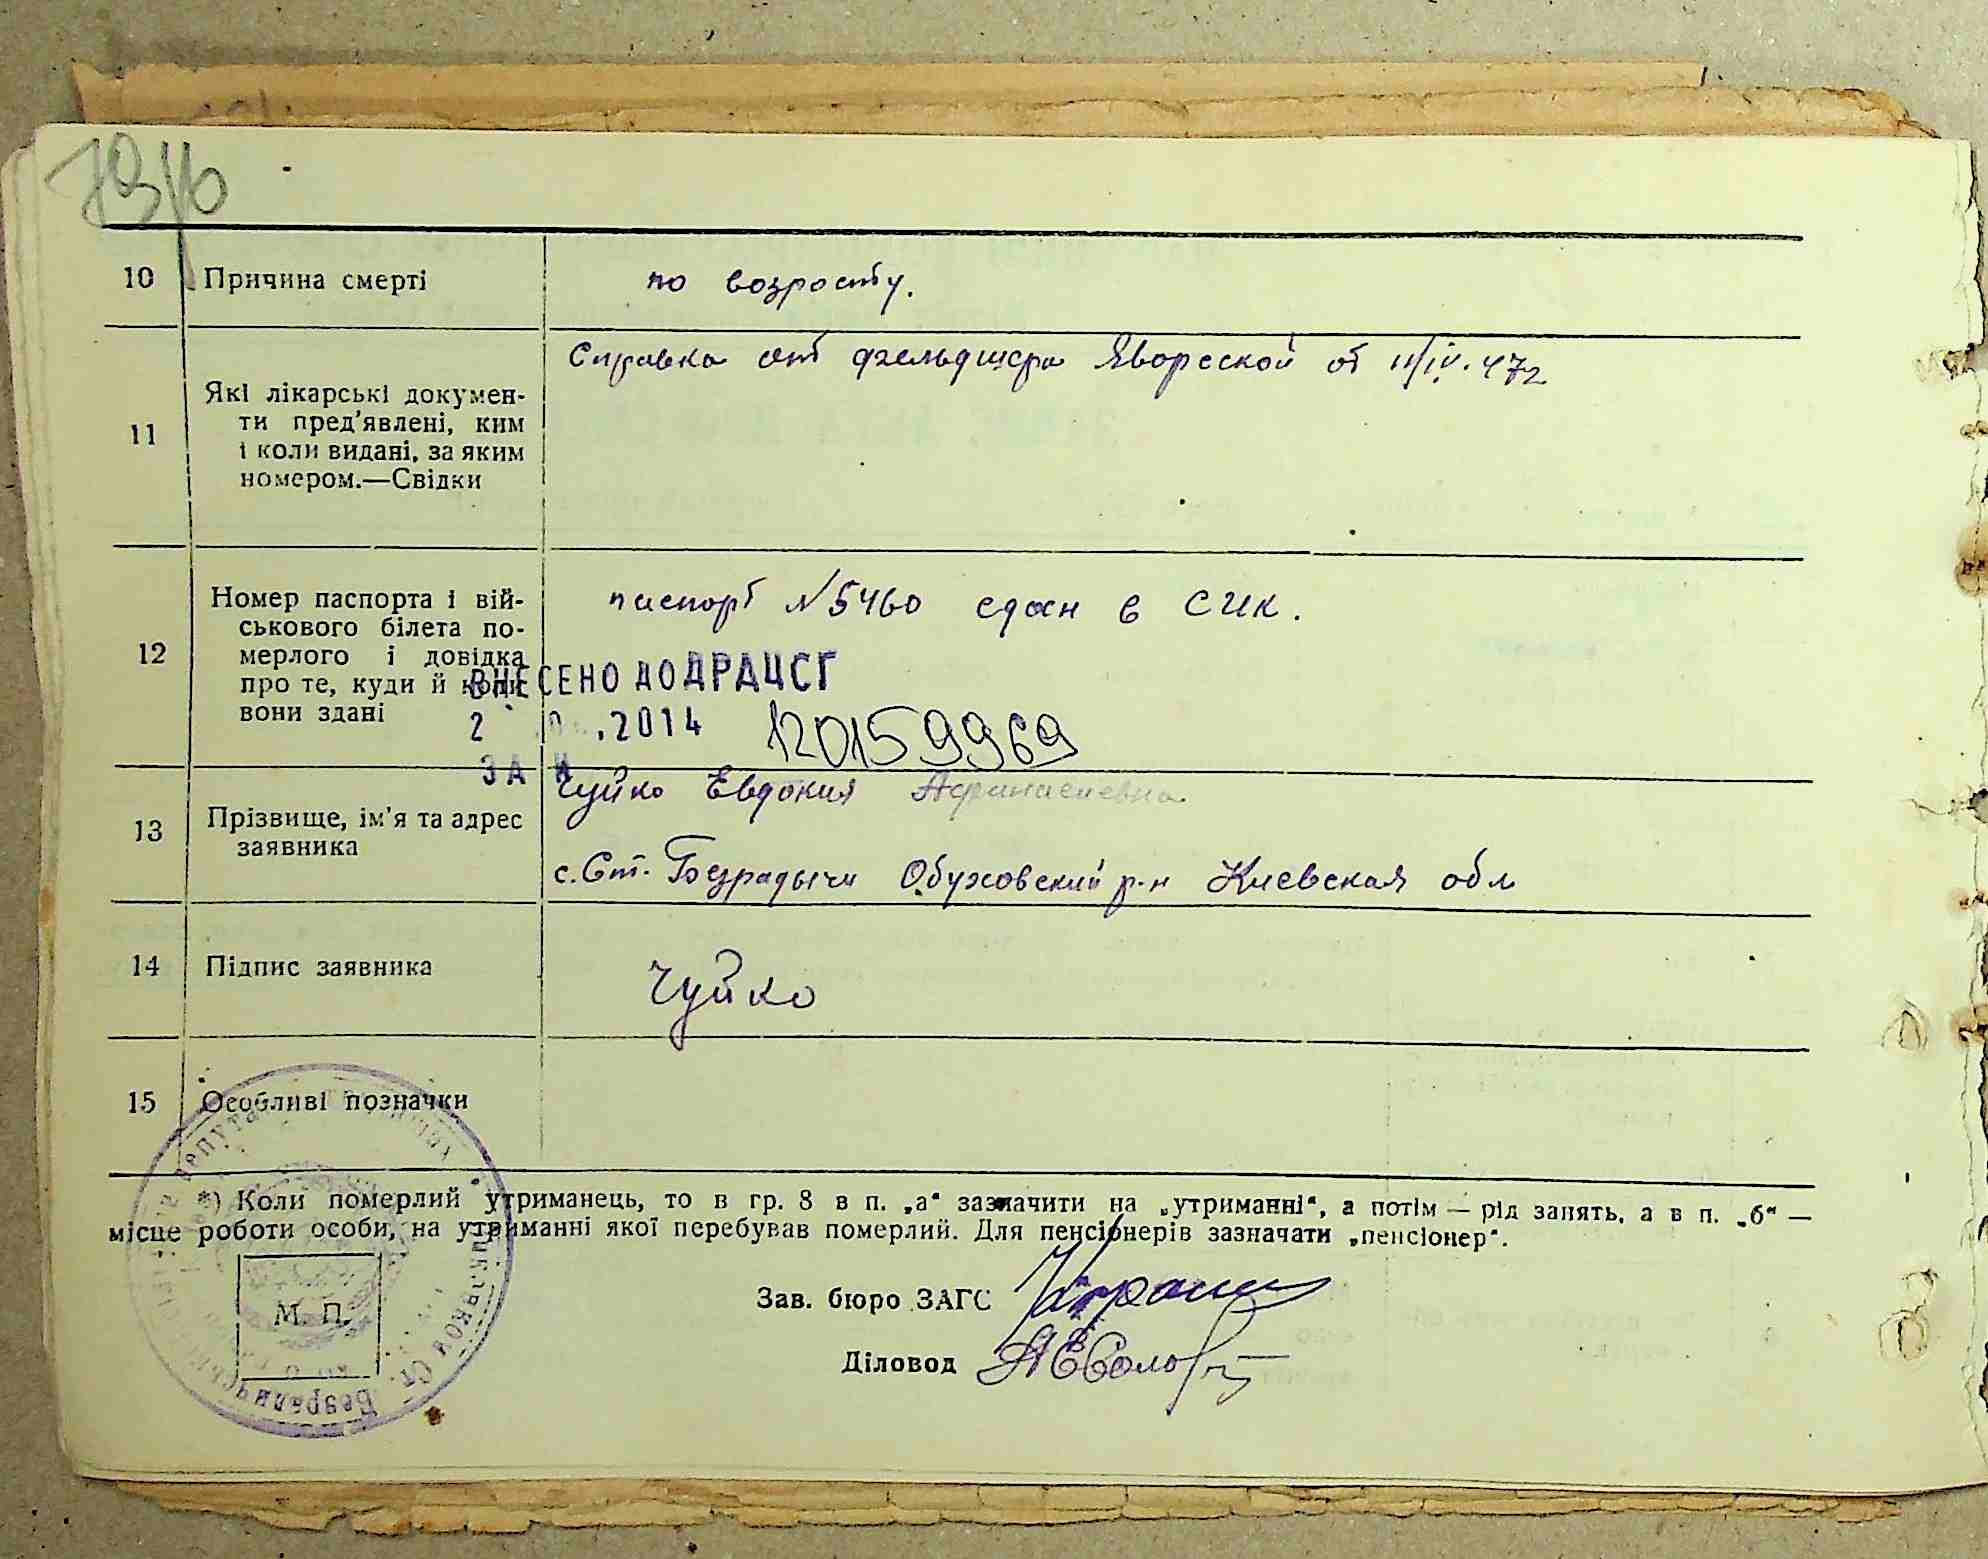 10 Причина смерті по возросту.
11 Які лікарські документи пред'явлені, ким і коли видані, за яким номером.—Свідки
Справка от фельдшера Яворской от 11/IV.47г
12 Номер паспорта і вій-
ськового білета по-
мерлого і довідка
про те, куди й коли
вони здані
паспорт №5460 сдан в СИК.
ВНЕСЕНО ДО ДРАЦСГ
2 .2014 12015 9969
ЗА №
13 Прізвище, ім'я та адрес
заявника
Чуйко Евдокия Афанасиевна
с. Ст. Безрадычи Обуховский р-н Киевская обл
14 Підпис заявника Чуйко
15 Особливі позначки
*) Коли померлий утриманець, то в гр. 8 в п. „а“ зазначити на „утриманні“, а потім — рід занять, а в п. „б“ —
місце роботи особи, на утриманні якої перебував померлий. Для пенсіонерів зазначати „пенсіонер“.
Зав. бюро ЗАГС
Діловод
М. П.